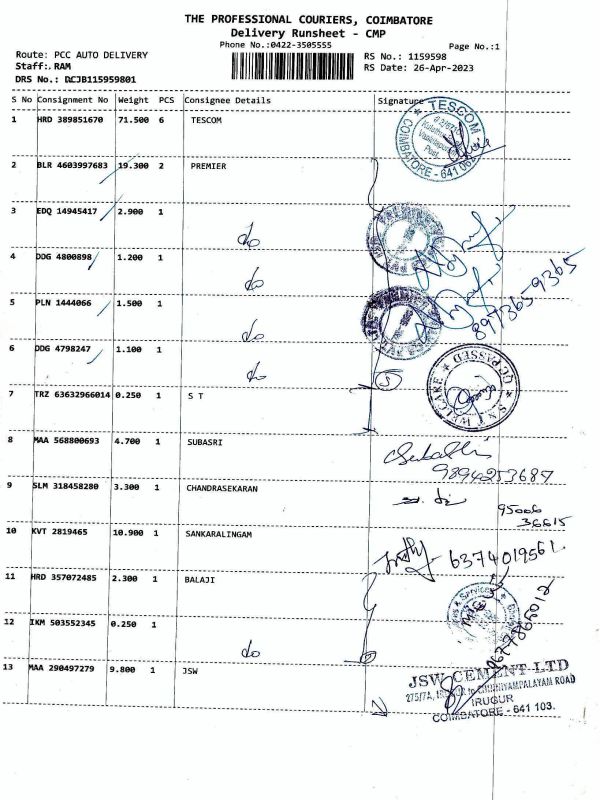 THE PROFESSIONAL COURIERS, COIMBATORE
Delivery Runsheet - CMP
Phone No.:0422-3505555
Page No.:1
Route: PCC AUTO DELIVERY
RS No.: 1159598
Staff:. RAM
RS Date: 26-Apr-2023
DRS No.: DCJB115959801
S No Consignment No Weight PCS Consignee Details Signature
1 HRD 389851670 71.500 6 TESCOM
TESCOM
COIMBATORE - 641 062
2 BLR 4603997683 19.300 2 PREMIER
3 EDQ 14945417 2.900 1 do
4 DDG 4800898 1.200 1 do
5 PLN 1444066 1.500 1 do
897365-9365
6 DDG 4798247 1.100 1 do
5
QC PASSED
S.N.T WELCARE
7 TRZ 63632966014 0.250 1 S T
8 MAA 568800693 4.700 1 SUBASRI
9894253687
9 SLM 318458280 3.300 1 CHANDRASEKARAN
95006
36615
10 KVT 2819465 10.900 1 SANKARALINGAM
6374019561
11 HRD 357072485 2.300 1 BALAJI
& Services
12 IKM 503552345 0.250 1 do
13 MAA 290497279 9.800 1 JSW
JSW CEMENT LTD
275/7A, IRUGUR to CHINNIYAMPALAYAM ROAD
IRUGUR
COIMBATORE - 641 103.